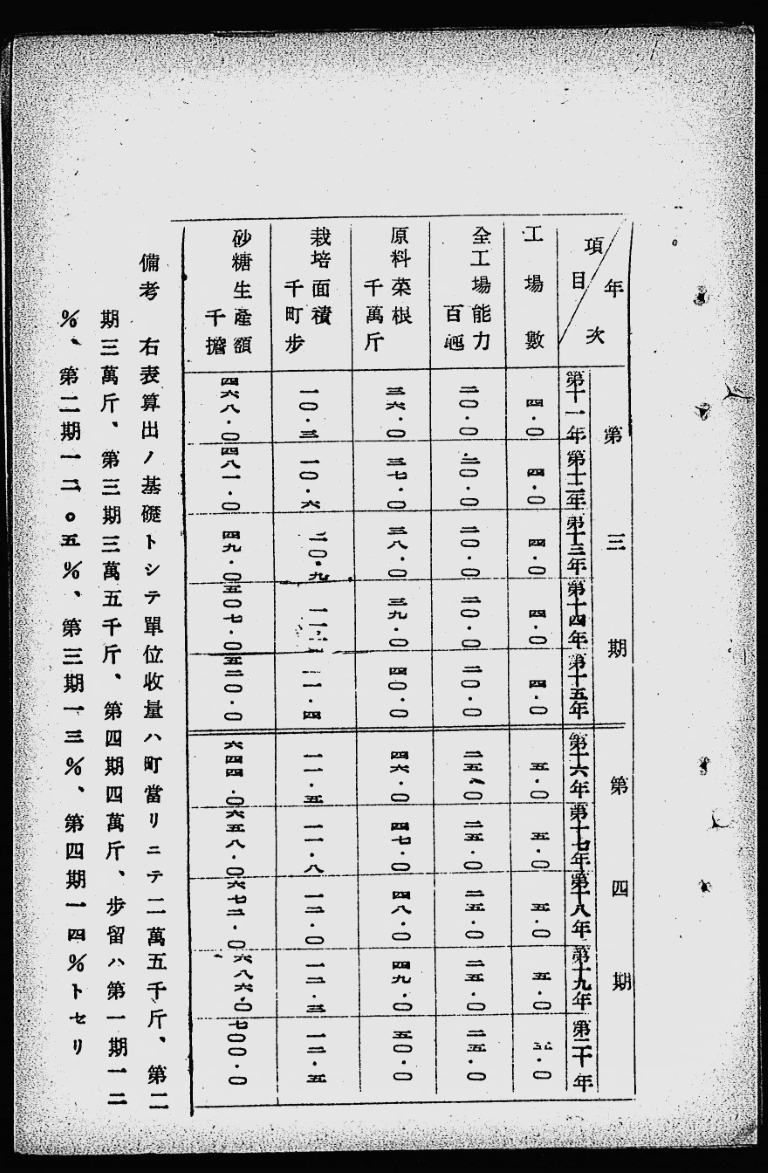 年次
項目
第三期
第四期
第十一年 第十二年 第十三年 第十四年 第十五年 第十六年 第十七年 第十八年 第十九年 第二十年
工場數 四・〇 四・〇 四・〇 四・〇 四・〇 五・〇 五・〇 五・〇 五・〇
全工場能力 百瓲 二〇・〇 二〇・〇 二〇・〇 二〇・〇 二〇・〇 二五・〇 二五・〇 二五・〇 二五・〇 二五・〇
原料菜根 千萬斤 三六・〇 三七・〇 三八・〇 三九・〇 四〇・〇 四六・〇 四七・〇 四八・〇 四九・〇 五〇・〇
栽培面積 千町步 一〇・三 一〇・六 一〇・九 一一・四 一一・五 一一・八 一二・〇 一二・三 一二・五
砂糖生產額 千擔 四六八・〇 四八一・〇 四九・〇 五〇七・〇 五二〇・〇 六四四・〇 六五八・〇 六七二・〇 六八六・〇 七〇〇・〇
備考 右表算出ノ基礎トシテ單位收量ハ町當リニテ二萬五千斤、第二
期三萬斤、第三期三萬五千斤、第四期四萬斤、步留ハ第一期一二
%、第二期一二。五%、第三期一三%、第四期一四%トセリ